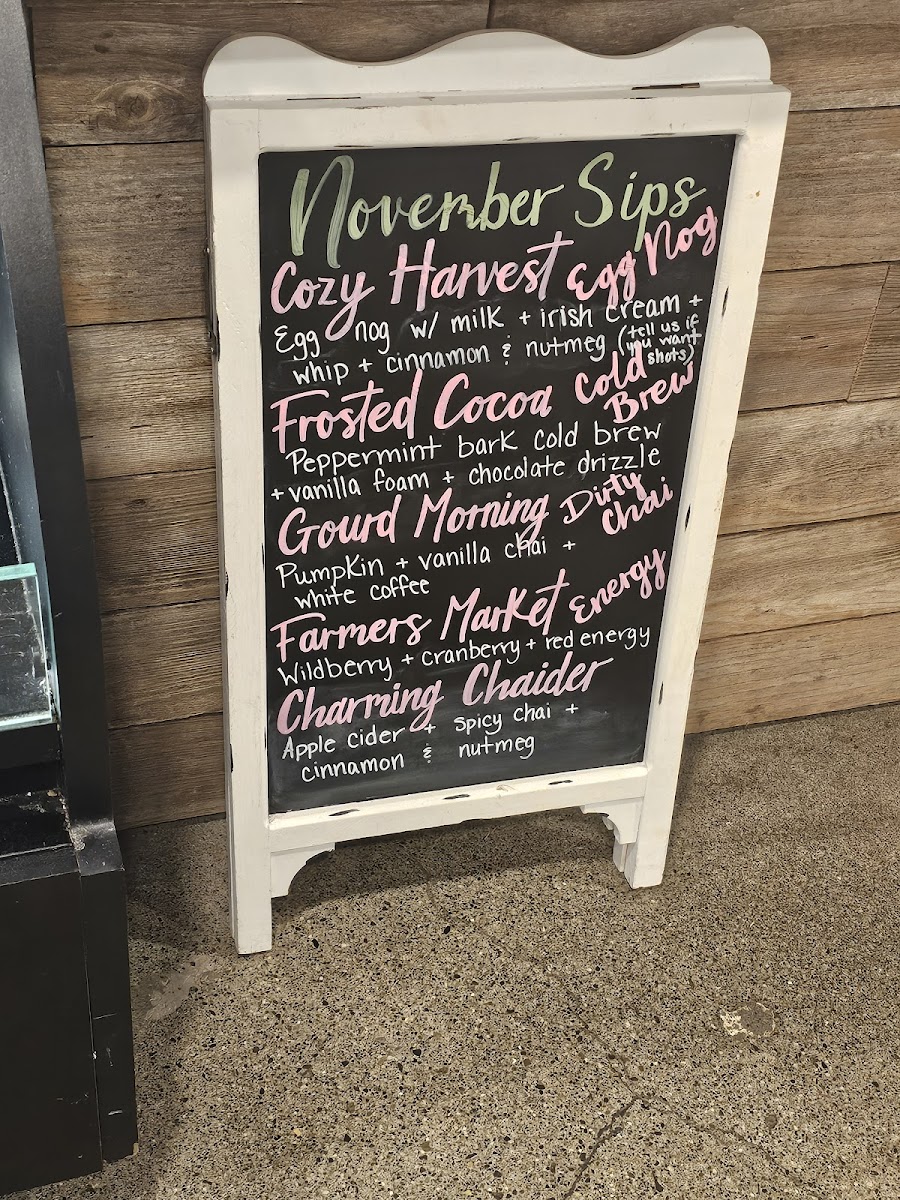 November Sips
Cozy Harvest Egg Nog
Egg nog w/ milk + irish cream +
whip + cinnamon & nutmeg (tell us if you want shots)
Frosted Cocoa Cold Brew
Peppermint bark cold brew
+ vanilla foam + chocolate drizzle
Gourd Morning Dirty Chai
Pumpkin + vanilla chai +
white coffee
Farmers Market Energy
Wildberry + cranberry + red energy
Charming Chaider
Apple cider + spicy chai +
cinnamon & nutmeg